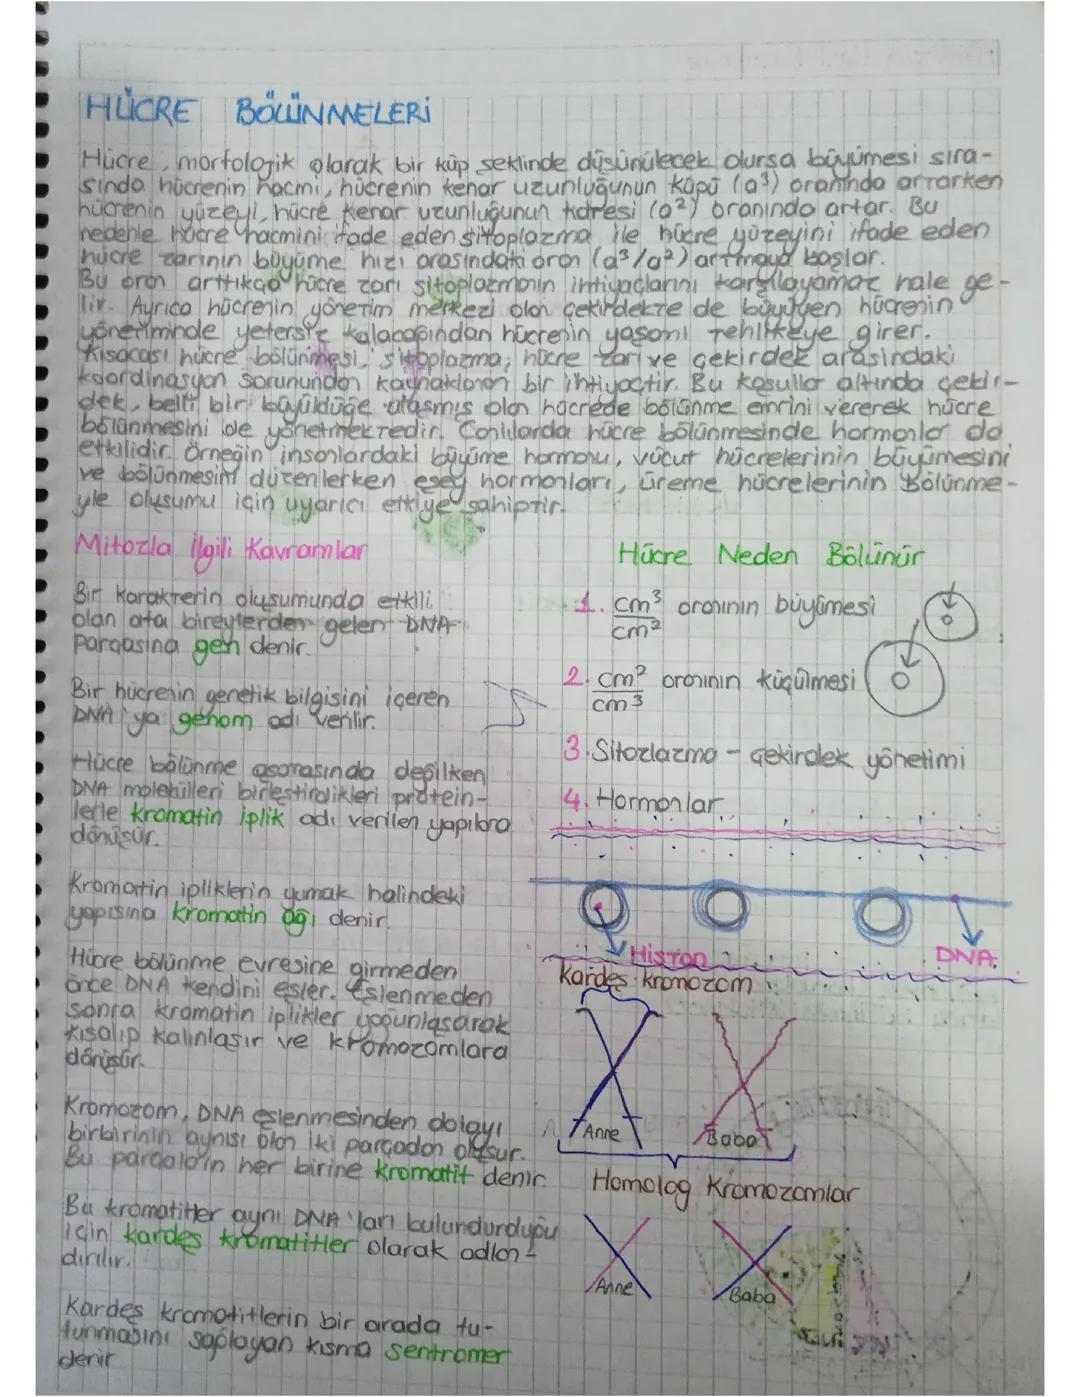 HÜCRE BÖLÜNMELERİ
Hücre, morfolojik olarak bir küp şeklinde düşünülecek olursa büyümesi sıra-
sında hücrenin hacmi, hücrenin kenar uzunluğunun küpü (a³) oranında artarken
hücrenin yüzeyi, hücre kenar uzunluğunun karesi (a²) oranında artar. Bu
nedenle hücre hacmini ifade eden sitoplazma ile hücre yüzeyini ifade eden
hücre zarının büyüme hızı arasındaki oran (a³/a²) artmaya başlar.
Bu oran arttıkça hücre zarı sitoplazmanın ihtiyaçlarını karşılayamaz hale ge-
lir. Ayrıca hücrenin yönetim merkezi olan çekirdekte de büyüyen hücrenin
yönetiminde yetersiz kalacağından hücrenin yaşamı tehlikeye girer.
Kısacası hücre bölünmesi, sitoplazma, hücre zarı ve çekirdek arasındaki
koordinasyon sorunundan kaynaklanan bir ihtiyaçtır. Bu koşullar altında çekir-
dek, belli bir büyüklüğe ulaşmış olan hücrede bölünme emrini vererek hücre
bölünmesini de yönetmektedir. Canlılarda hücre bölünmesinde hormonlar da
etkilidir. Örneğin insanlardaki büyüme hormonu, vücut hücrelerinin büyümesini
ve bölünmesini düzenlerken eşey hormonları, üreme hücrelerinin bölünme-
yle oluşumu için uyarıcı etkiye sahiptir.
Mitozla ilgili Kavramlar
Bir karakterin oluşumunda etkili
olan ata bireylerden gelen DNA
Parçasına gen denir.
Bir hücrenin genetik bilgisini içeren
DNA'ya genom adı verilir.
Hücre bölünme aşamasında değilken
DNA molekülleri birleştirdikleri protein-
lerle kromatin iplik adı verilen yapılara
dönüşür.
Kromatin ipliklerin yumak halindeki
yapısına kromatin ağı denir.
Hücre bölünme evresine girmeden
önce DNA kendini eşler. Eşlenmeden
sonra kromatin iplikler yoğunlaşarak
kısalıp kalınlaşır ve kromozomlara
dönüşür.
Kromozom, DNA eşlenmesinden dolayı
birbirinin aynısı olan iki parçadan oluşur.
Bu parçaların her birine kromatit denir
Bu kromatitler aynı DNA'ları bulundurduğu
için kardeş kromatitler olarak adlan-
dırılır.
Kardeş kromatitlerin bir arada tu-
tunmasını sağlayan kısma sentromer
denir
Hücre Neden Bölünür
1. cm³ oranının büyümesi
cm²
2. cm² oranının küçülmesi
cm3
3. Sitozlazma - çekirdek yönetimi
4. Hormonlar
Histon
DNA
Kardeş kromozom
Anne
Baba
Homolog Kromozomlar
Anne
Baba